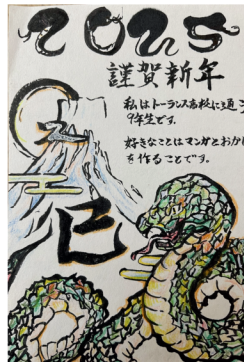 2025
謹賀新年
私はトーランス高校に通う
9年生です。
好きなことはマンガとおか
を作ることです。
巳